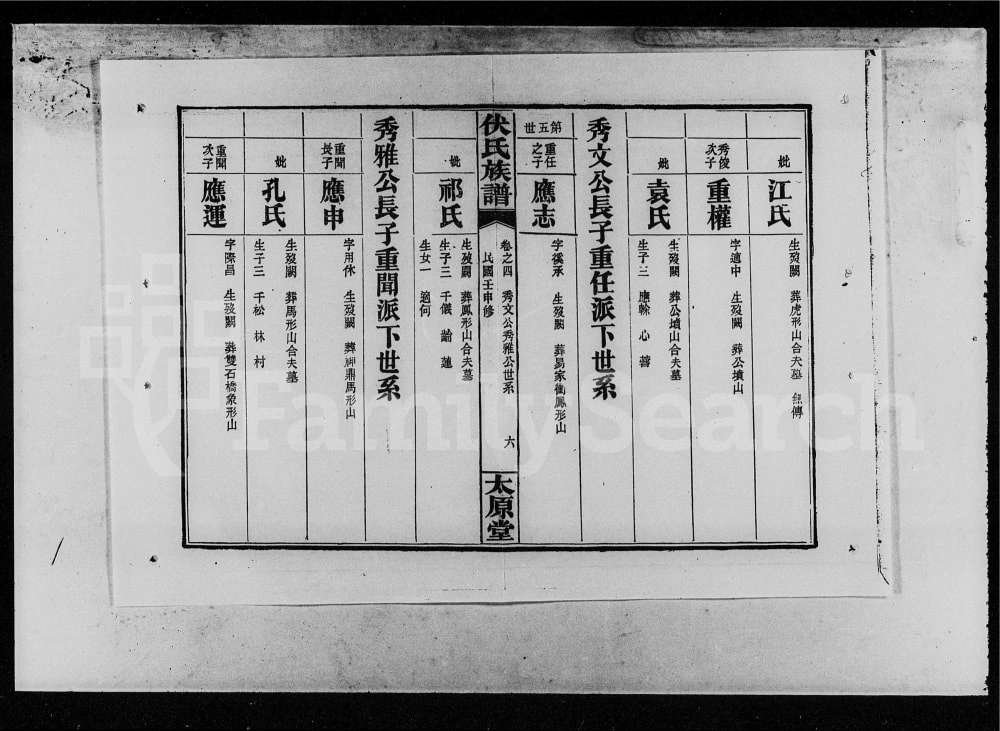 妣
江氏
生歿闕 葬虎形山合夫墓 無傳
秀俊次子
重權
字適中 生歿闕 葬公墳山
妣
袁氏
生歿闕 葬公墳山合夫墓
生子三 應榦 心 善
秀文公長子重任派下世系
第五世
重任之子
應志
字 承 生歿闕 葬易家衝鳳形山
伏氏族譜
卷之四 秀文公秀雅公世系 六
民國壬申修
太原堂
妣
祁氏
生歿闕 葬鳳形山合夫墓
生子三 千儀 蓮
生女一 適何
秀雅公長子重聞派下世系
重聞長子
應申
字用休 生歿闕 葬神鼎馬形山
妣
孔氏
生歿闕 葬馬形山合夫墓
生子三 千松 林 村
重聞次子
應運
字際昌 生歿闕 葬雙石橋象形山
FamilySearch